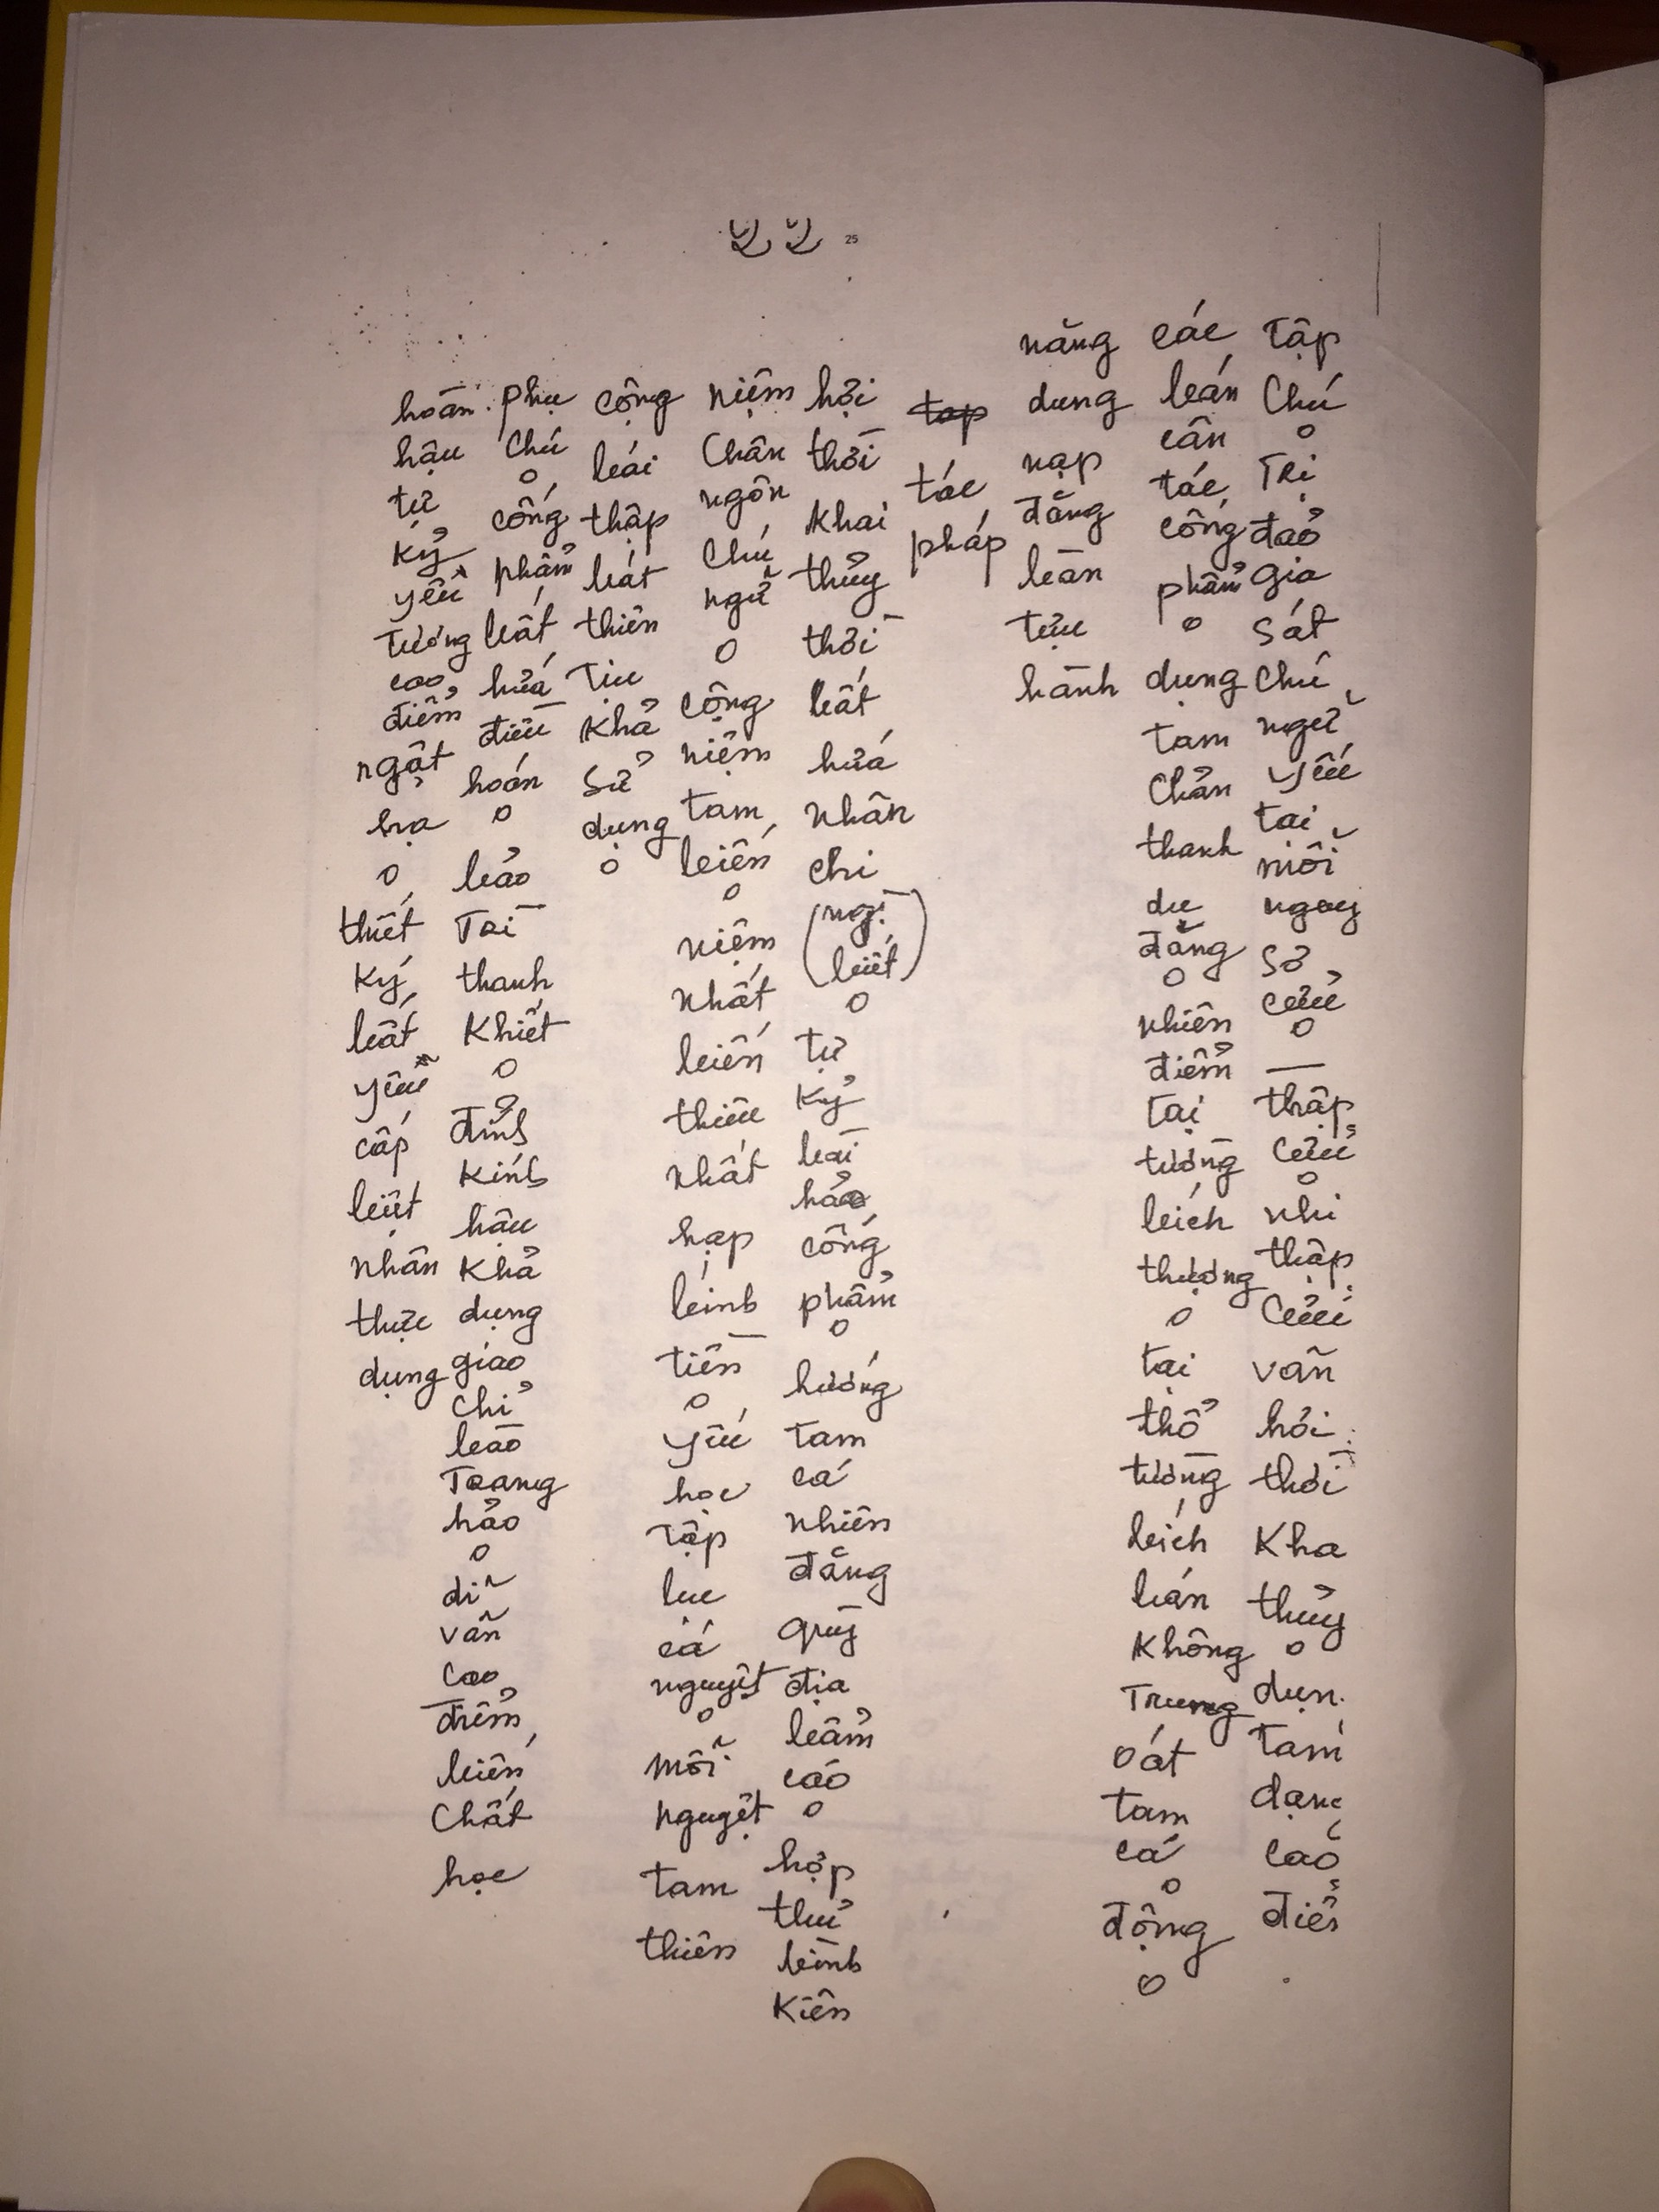 22 25
Tập Chú o Trị đảo gia sát chú ngữ yếu tại mỗi ngoy sơ cửu o — thập cửu o nhi thập cửu vãn hỏi thời Kha thủy o dụn tam dạng cáo điển
các bán cân tác cống phẩm o dụng tam Chân thanh du đăng o nhiên điểm tại tường bích thượng o tại thổ tường bích bán Không Trung oát tam cá động o
năng dung nạp đăng bàn tựu hành
tác pháp
hội thời khai thủy thời bất hứa nhân chi (ngị biết) o tự Kỷ bài hảo cống phẩm o hướng tam cá nhiên đăng quỳ địa bẩm cáo o hợp thủ bình Kiên
niệm Chân ngôn Chú ngữ o cộng niệm tam biến o niệm nhất biến thiêu nhất hạp binb tiền o yếu học Tập lục cá nguyệt o mỗi nguyệt tam thiên
cộng bái thập bát thiên Tịu Khả sử dụng o
phụ Chú o cống phẩm bất hứa điều hoán o bảo Trì thanh Khiết o đỉnh Kính hậu Khả dụng giao chỉ bao Trang hảo o dĩ vãn cao điểm biến Chất học
hoàn hậu tự Kỷ yếu Tương cao điểm ngật hạ o thiết Ký bất yếu cấp biệt nhân thực dụng